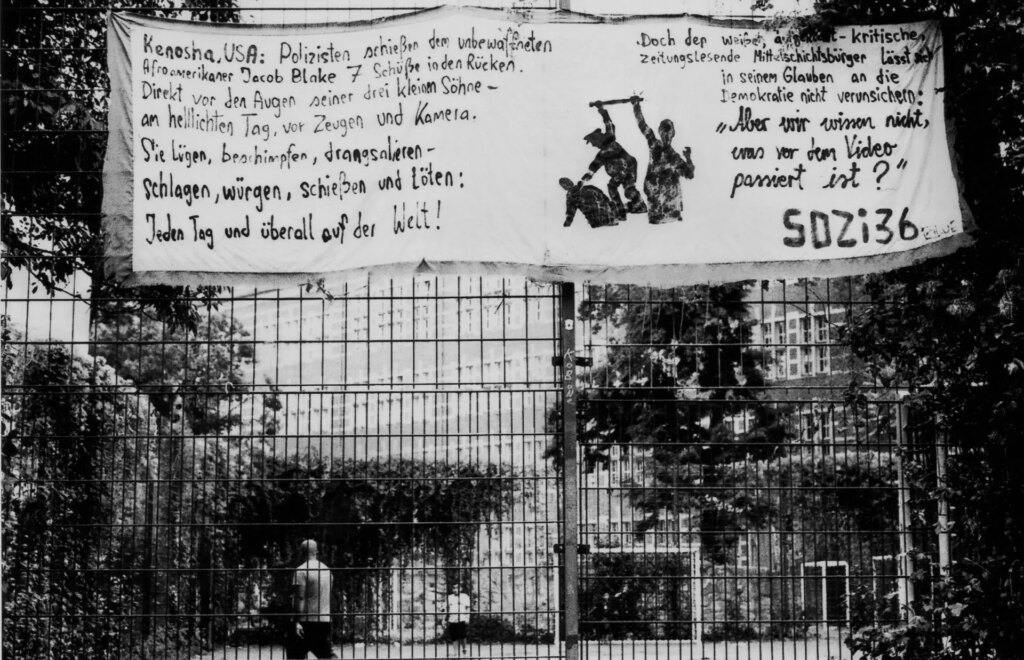 Kenosha, USA: Polizisten schießen dem unbewaffneten
Afroamerikaner Jacob Blake 7 Schüße in den Rücken.
Direkt vor den Augen seiner drei kleinen Söhne –
am helllichten Tag, vor Zeugen und Kamera.
Sie lügen, beschimpfen, drangsalieren –
schlagen, würgen, schießen und töten:
Jeden Tag und überall auf der Welt!
Doch der weiße, -kritische,
zeitungslesende Mittelschichtsbürger lässt sich
in seinem Glauben an die
Demokratie nicht verunsichern:
„Aber wir wissen nicht,
was vor dem Video
passiert ist?"
SOZi36